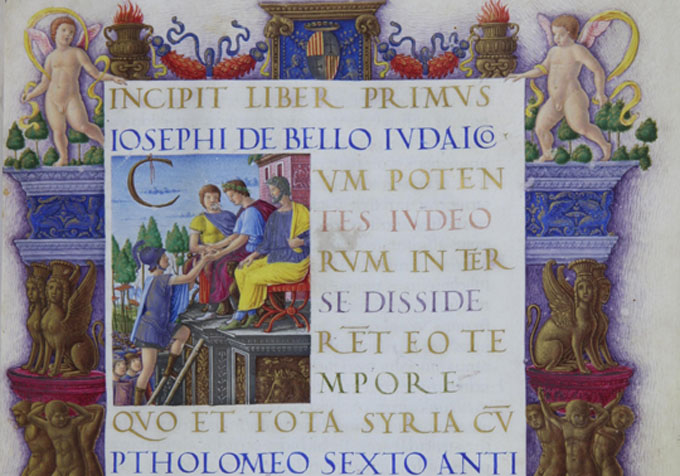 INCIPIT LIBER PRIMVS
IOSEPHI DE BELLO IVDAICO
C VM POTEN
TES IVDEO
RVM IN TER
SE DISSIDE
RĒT EO TE
MPORE
QVO ET TOTA SYRIA CV̄
PTHOLOMEO SEXTO ANTI